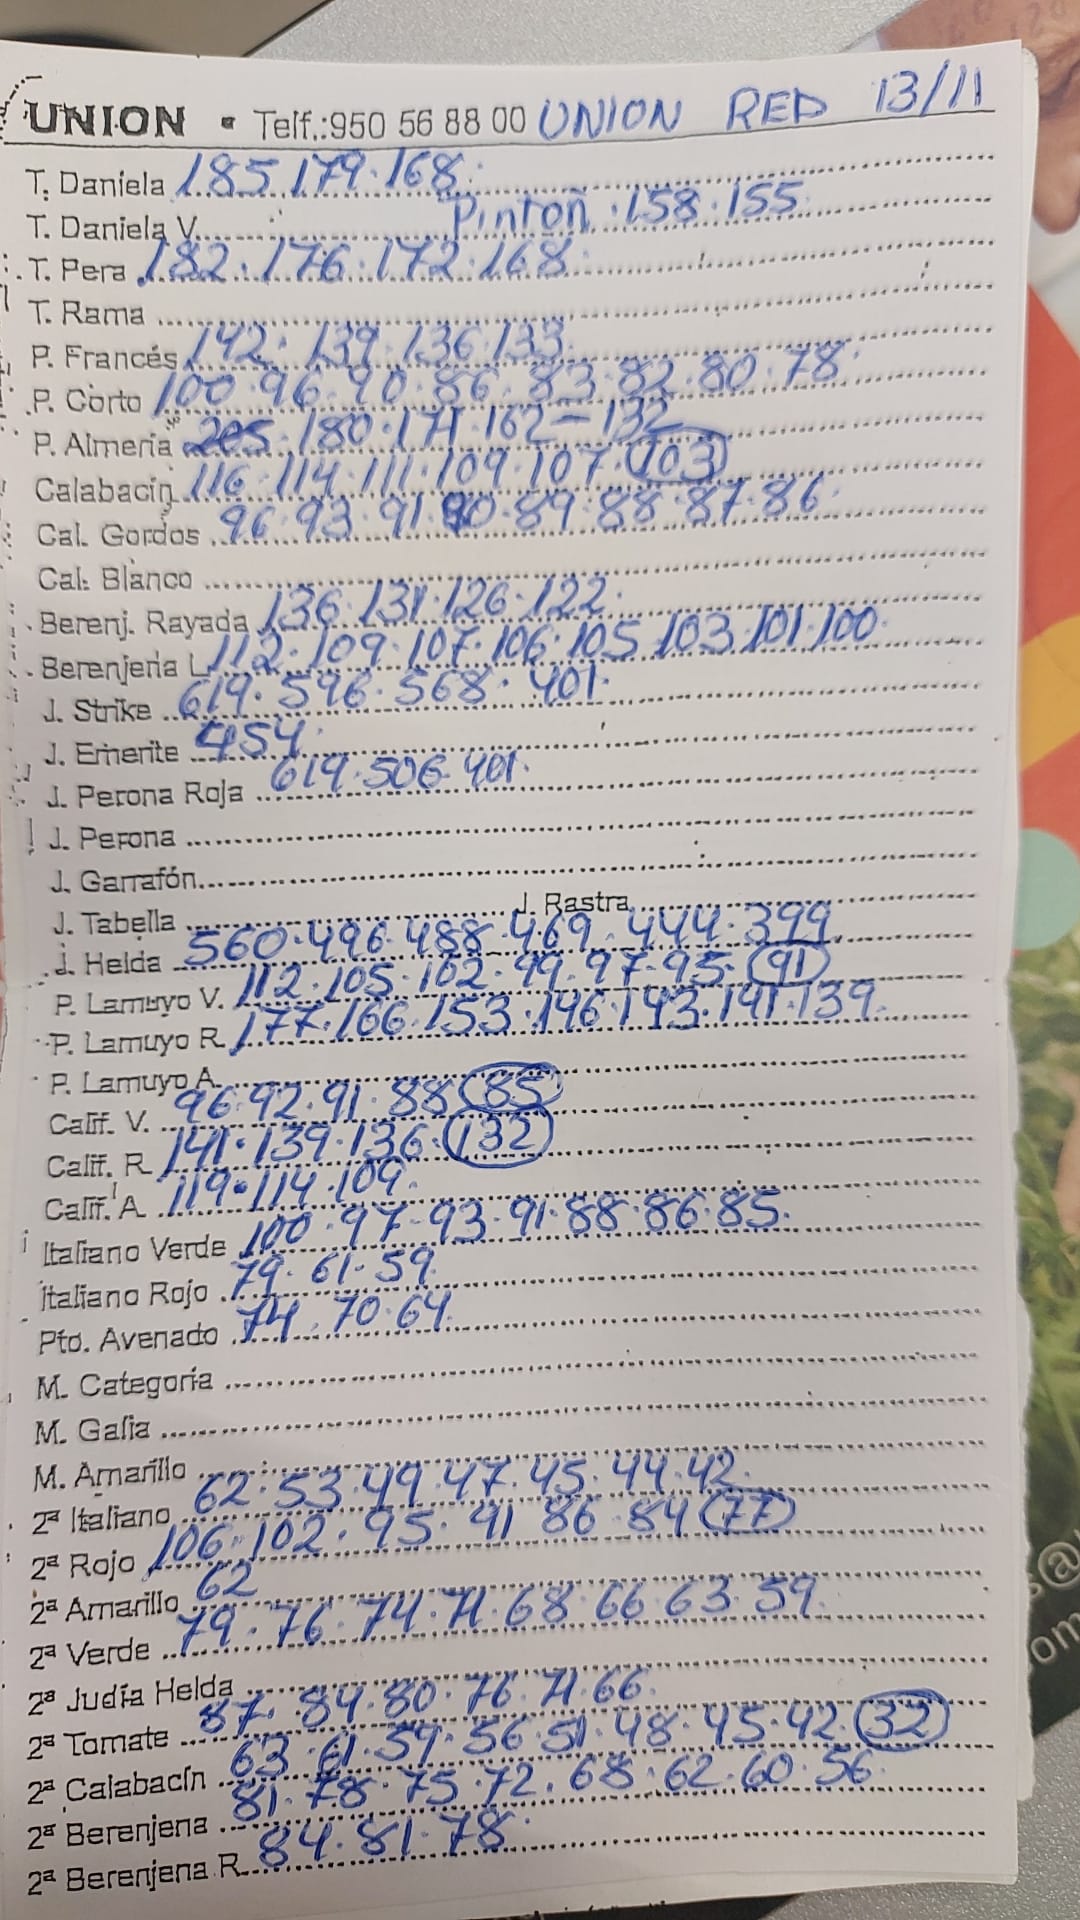 UNION • Telf.:950 56 88 00 UNION RED 13/11
T. Daniela 185.179.168.
T. Daniela V. Pintoñ.158.155
T. Pera 182.176.172.168.
T. Rama
P. Francés 142.139.136.133.
P. Corto 100.96.90.86.83.82.80.78.
P. Almería 205.180.171.162-132
Calabacín 116.114.111.109.107.103
Cal. Gordos 96.93.91.90.89.88.87.86.
Cal. Blanco
Berenj. Rayada 136.131.126.122.
Berenjena L 112.109.107.106.105.103.101.100.
J. Strike 619.596.568.401.
J. Emerite 454.
J. Perona Roja 619.506.401.
J. Perona
J. Garrafón
J. Tabella J. Rastra
J. Helda 560.496.488.469.444.399.
P. Lamuyo V. 112.105.102.99.97.95.91
P. Lamuyo R. 177.166.153.146.143.141.139.
P. Lamuyo A.
Calif. V. 96.92.91.88.85
Calif. R. 141.139.136.132
Calif. A. 119.114.109.
Italiano Verde 100.97.93.91.88.86.85.
Italiano Rojo 79.61.59.
Pto. Avenado 74.70.64.
M. Categoría
M. Galia
M. Amarillo
2ª Italiano 62.53.49.47.45.44.42.
2ª Rojo 106.102.95.91.86.84.77
2ª Amarillo 62
2ª Verde 79.76.74.71.68.66.63.59.
2ª Judía Helda
2ª Tomate 87.84.80.76.71.66.
2ª Calabacín 63.61.59.56.51.48.45.42.32
2ª Berenjena 81.78.75.72.68.62.60.56.
2ª Berenjena R. 84.81.78.